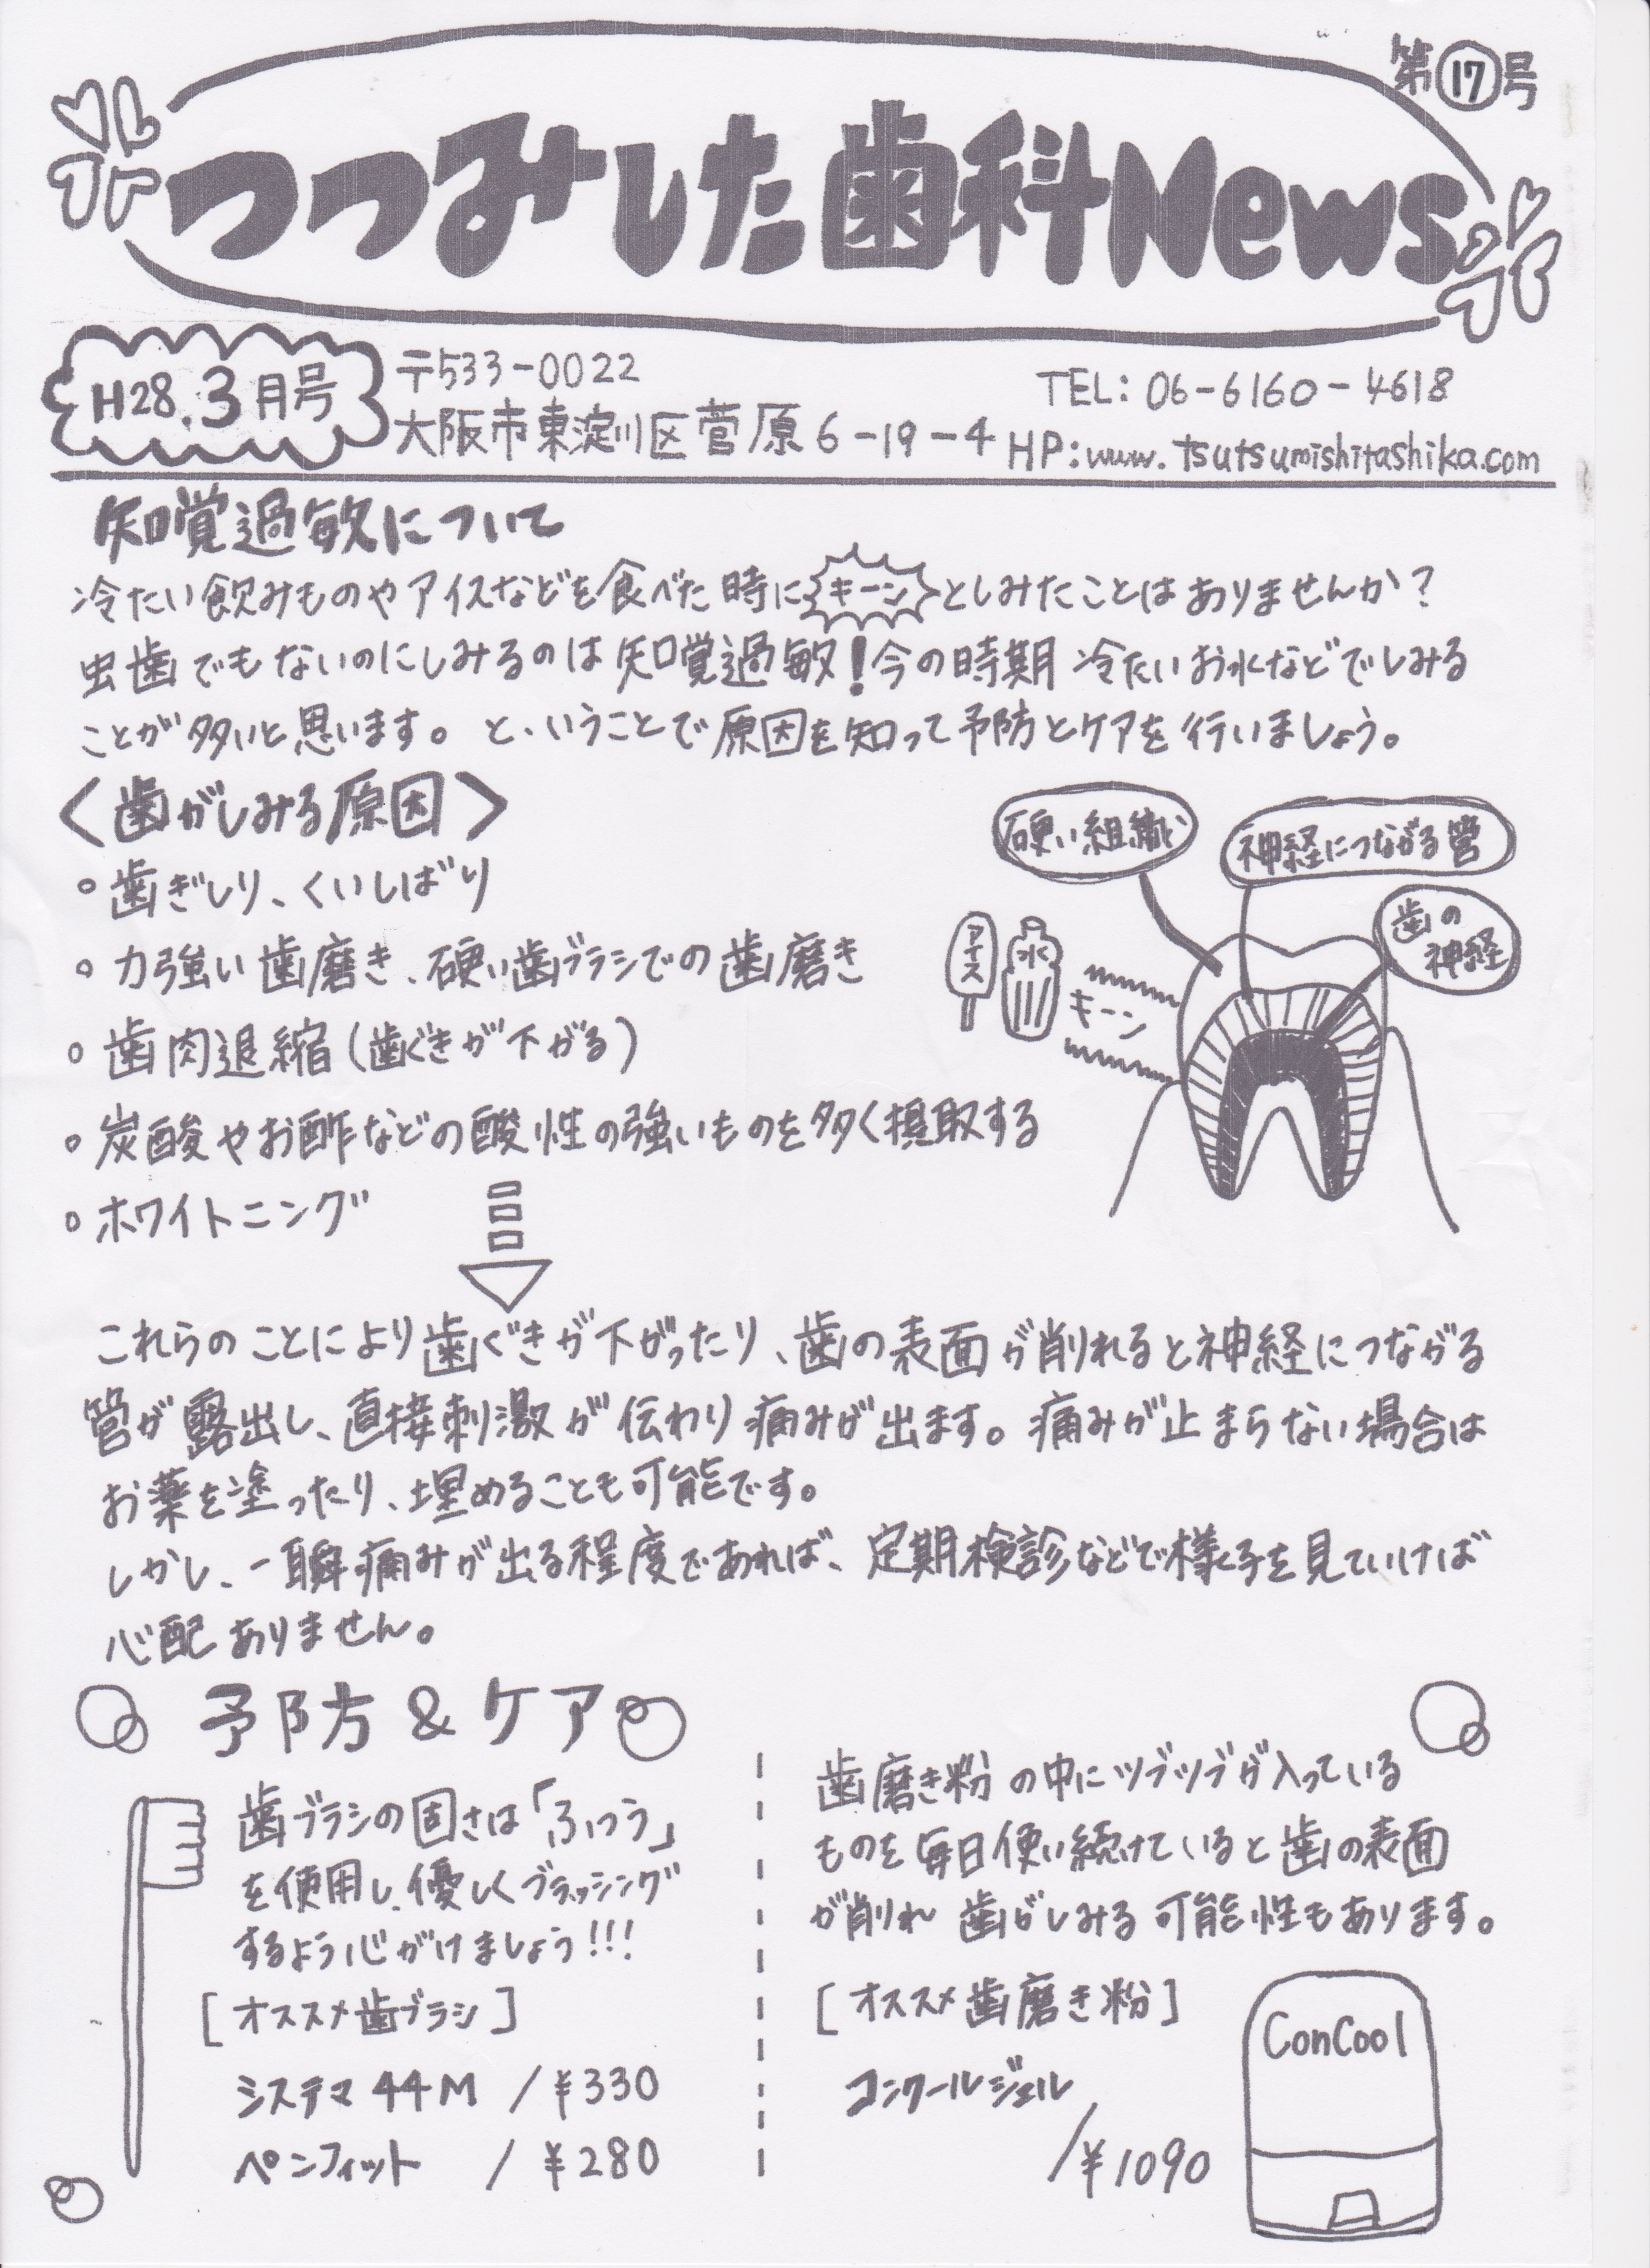 第⑰号
つつみした歯科News
H28.3月号
〒533-0022
大阪市東淀川区菅原6-19-4
TEL: 06-6160-4618
HP:www.tsutsumishitashika.com
知覚過敏について
冷たい飲みものやアイスなどを食べた時にキーンとしみたことはありませんか?
虫歯でもないのにしみるのは知覚過敏!今の時期冷たいお水などでしみる
ことが多いと思います。と、いうことで原因を知って予防とケアを行いましょう。
<歯がしみる原因>
○歯ぎしり、くいしばり
○力強い歯磨き、硬い歯ブラシでの歯磨き
○歯肉退縮(歯ぐきが下がる)
○炭酸やお酢などの酸性の強いものを多く摂取する
○ホワイトニング
硬い組織
神経につながる管
歯の
神経
アイス
水
キーン
これらのことにより歯ぐきが下がったり、歯の表面が削れると神経につながる
管が露出し、直接刺激が伝わり痛みが出ます。痛みが止まらない場合は
お薬を塗ったり、埋めることも可能です。
しかし、一瞬痛みが出る程度であれば、定期検診などで様子を見ていけば
心配ありません。
予防&ケア
歯ブラシの固さは「ふつう」
を使用し、優しくブラッシング
するよう心がけましょう!!!
[オススメ歯ブラシ]
システマ44M /¥330
ペンフィット /¥280
歯磨き粉の中にツブツブが入っている
ものを毎日使い続けていると歯の表面
が削れ歯がしみる可能性もあります。
[オススメ歯磨き粉]
コンクールジェル
/¥1090
ConCool